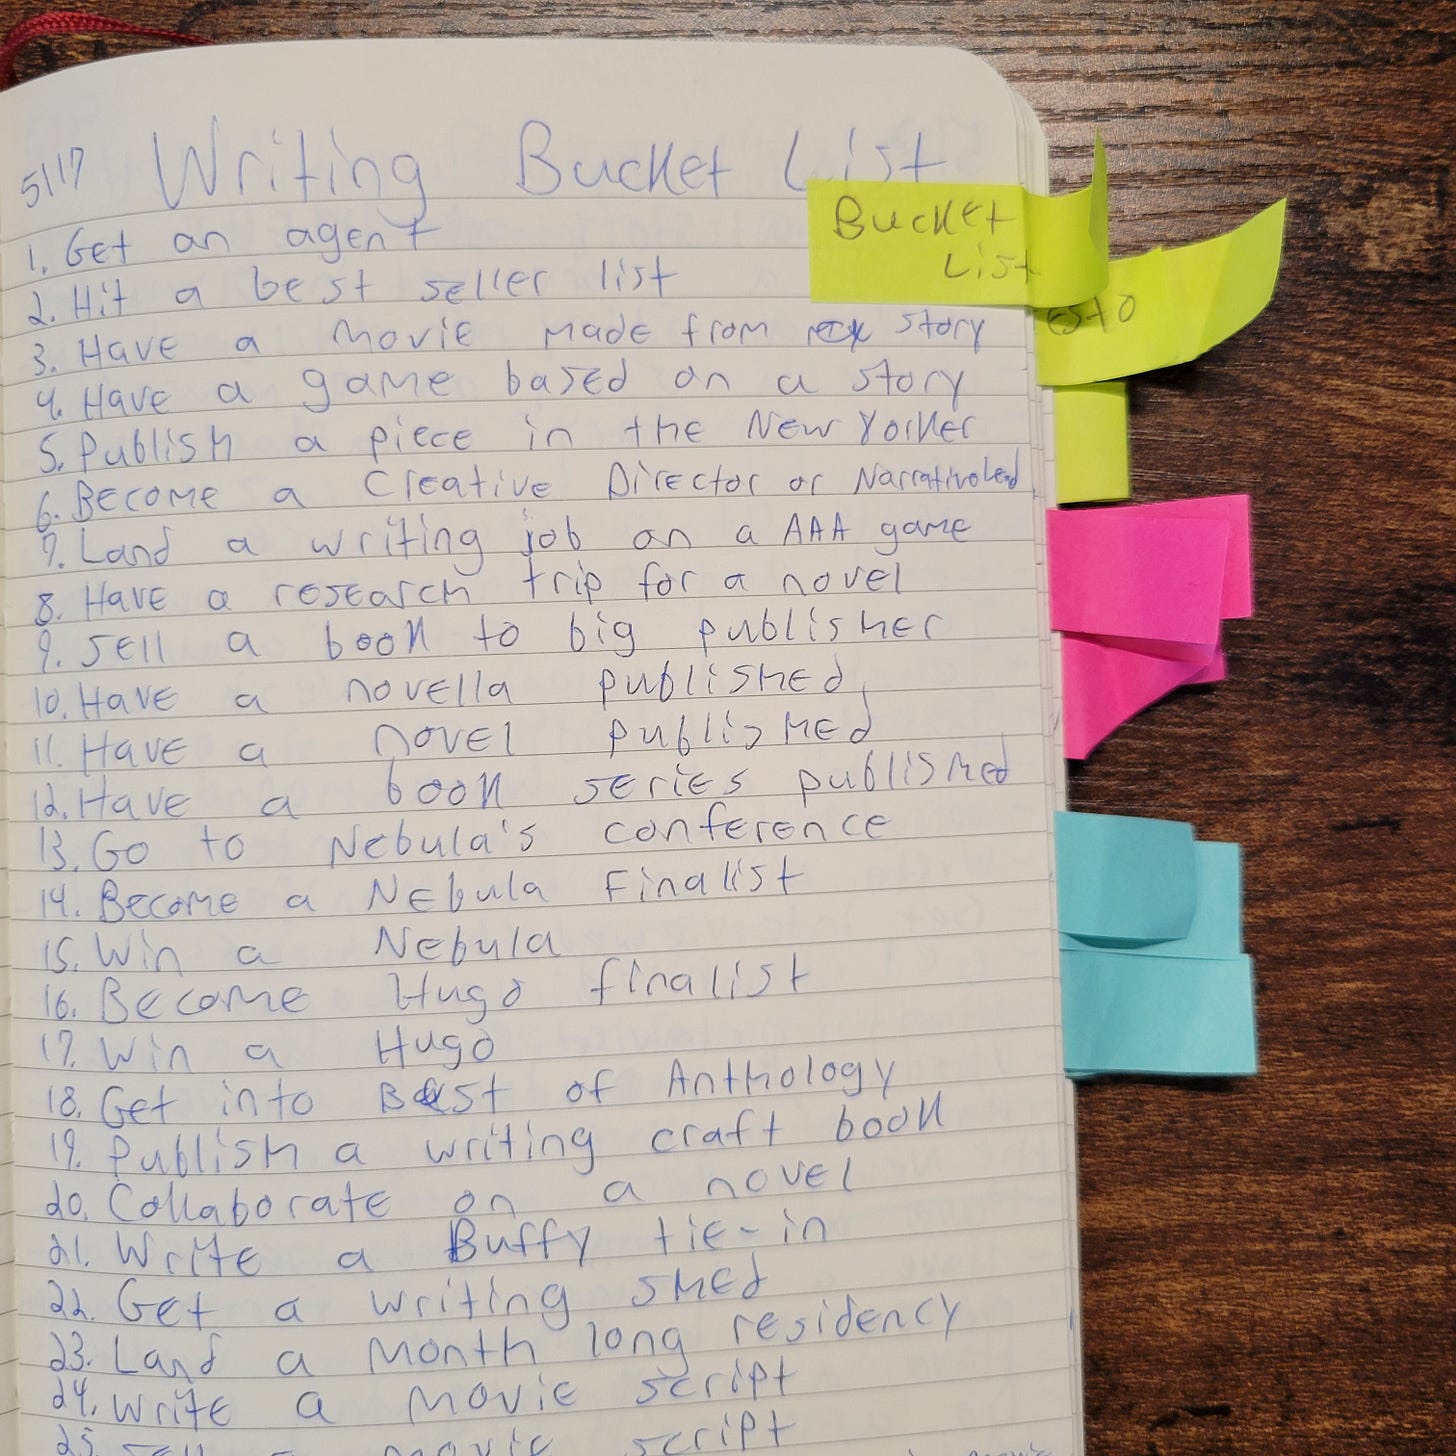 5/17 Writing Bucket List
Bucket
List
esto
1. Get an agent
2. Hit a best seller list
3. Have a movie made from story
4. Have a game based on a story
5. Publish a piece in the New Yorker
6. Become a Creative Director or Narrative Lead
7. Land a writing job on a AAA game
8. Have a research trip for a novel
9. Sell a book to big publisher
10. Have a novella published
11. Have a novel published
12. Have a book series published
13. Go to Nebula's conference
14. Become a Nebula Finalist
15. Win a Nebula
16. Become Hugo finalist
17. Win a Hugo
18. Get into Best of Anthology
19. Publish a writing craft book
20. Collaborate on a novel
21. Write a Buffy tie-in
22. Get a writing shed
23. Land a month long residency
24. Write a movie script
25. Sell a movie script